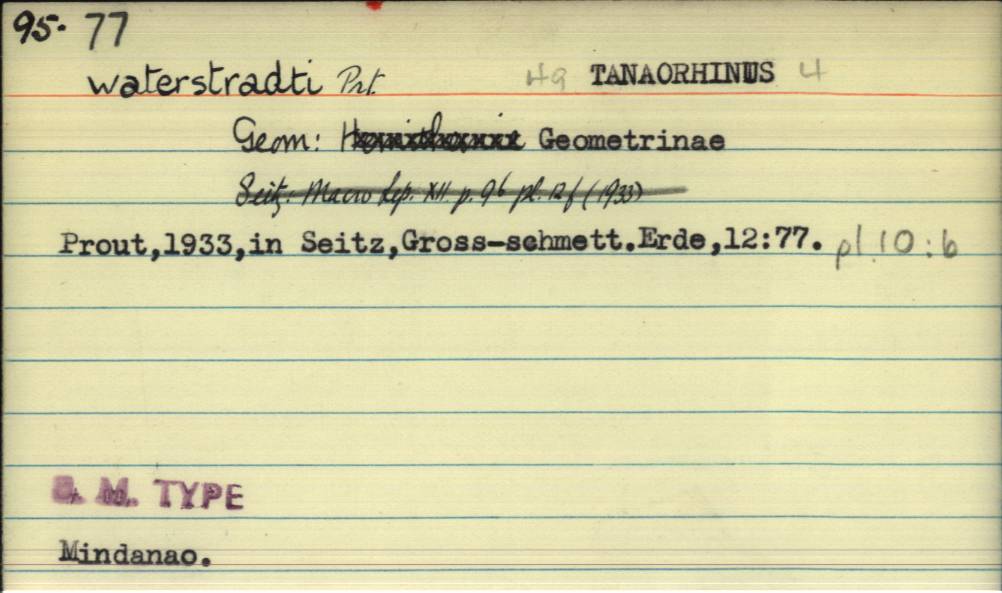 95. 77
waterstradti Prt. Hq TANAORHINUS 4
Geom: Geometrinae
Seitz: Macro Lep. XII. p. 96 pl. 12 f (1933)
Prout,1933,in Seitz,Gross-schmett.Erde,12:77. pl.10:6
B. M. TYPE
Mindanao.